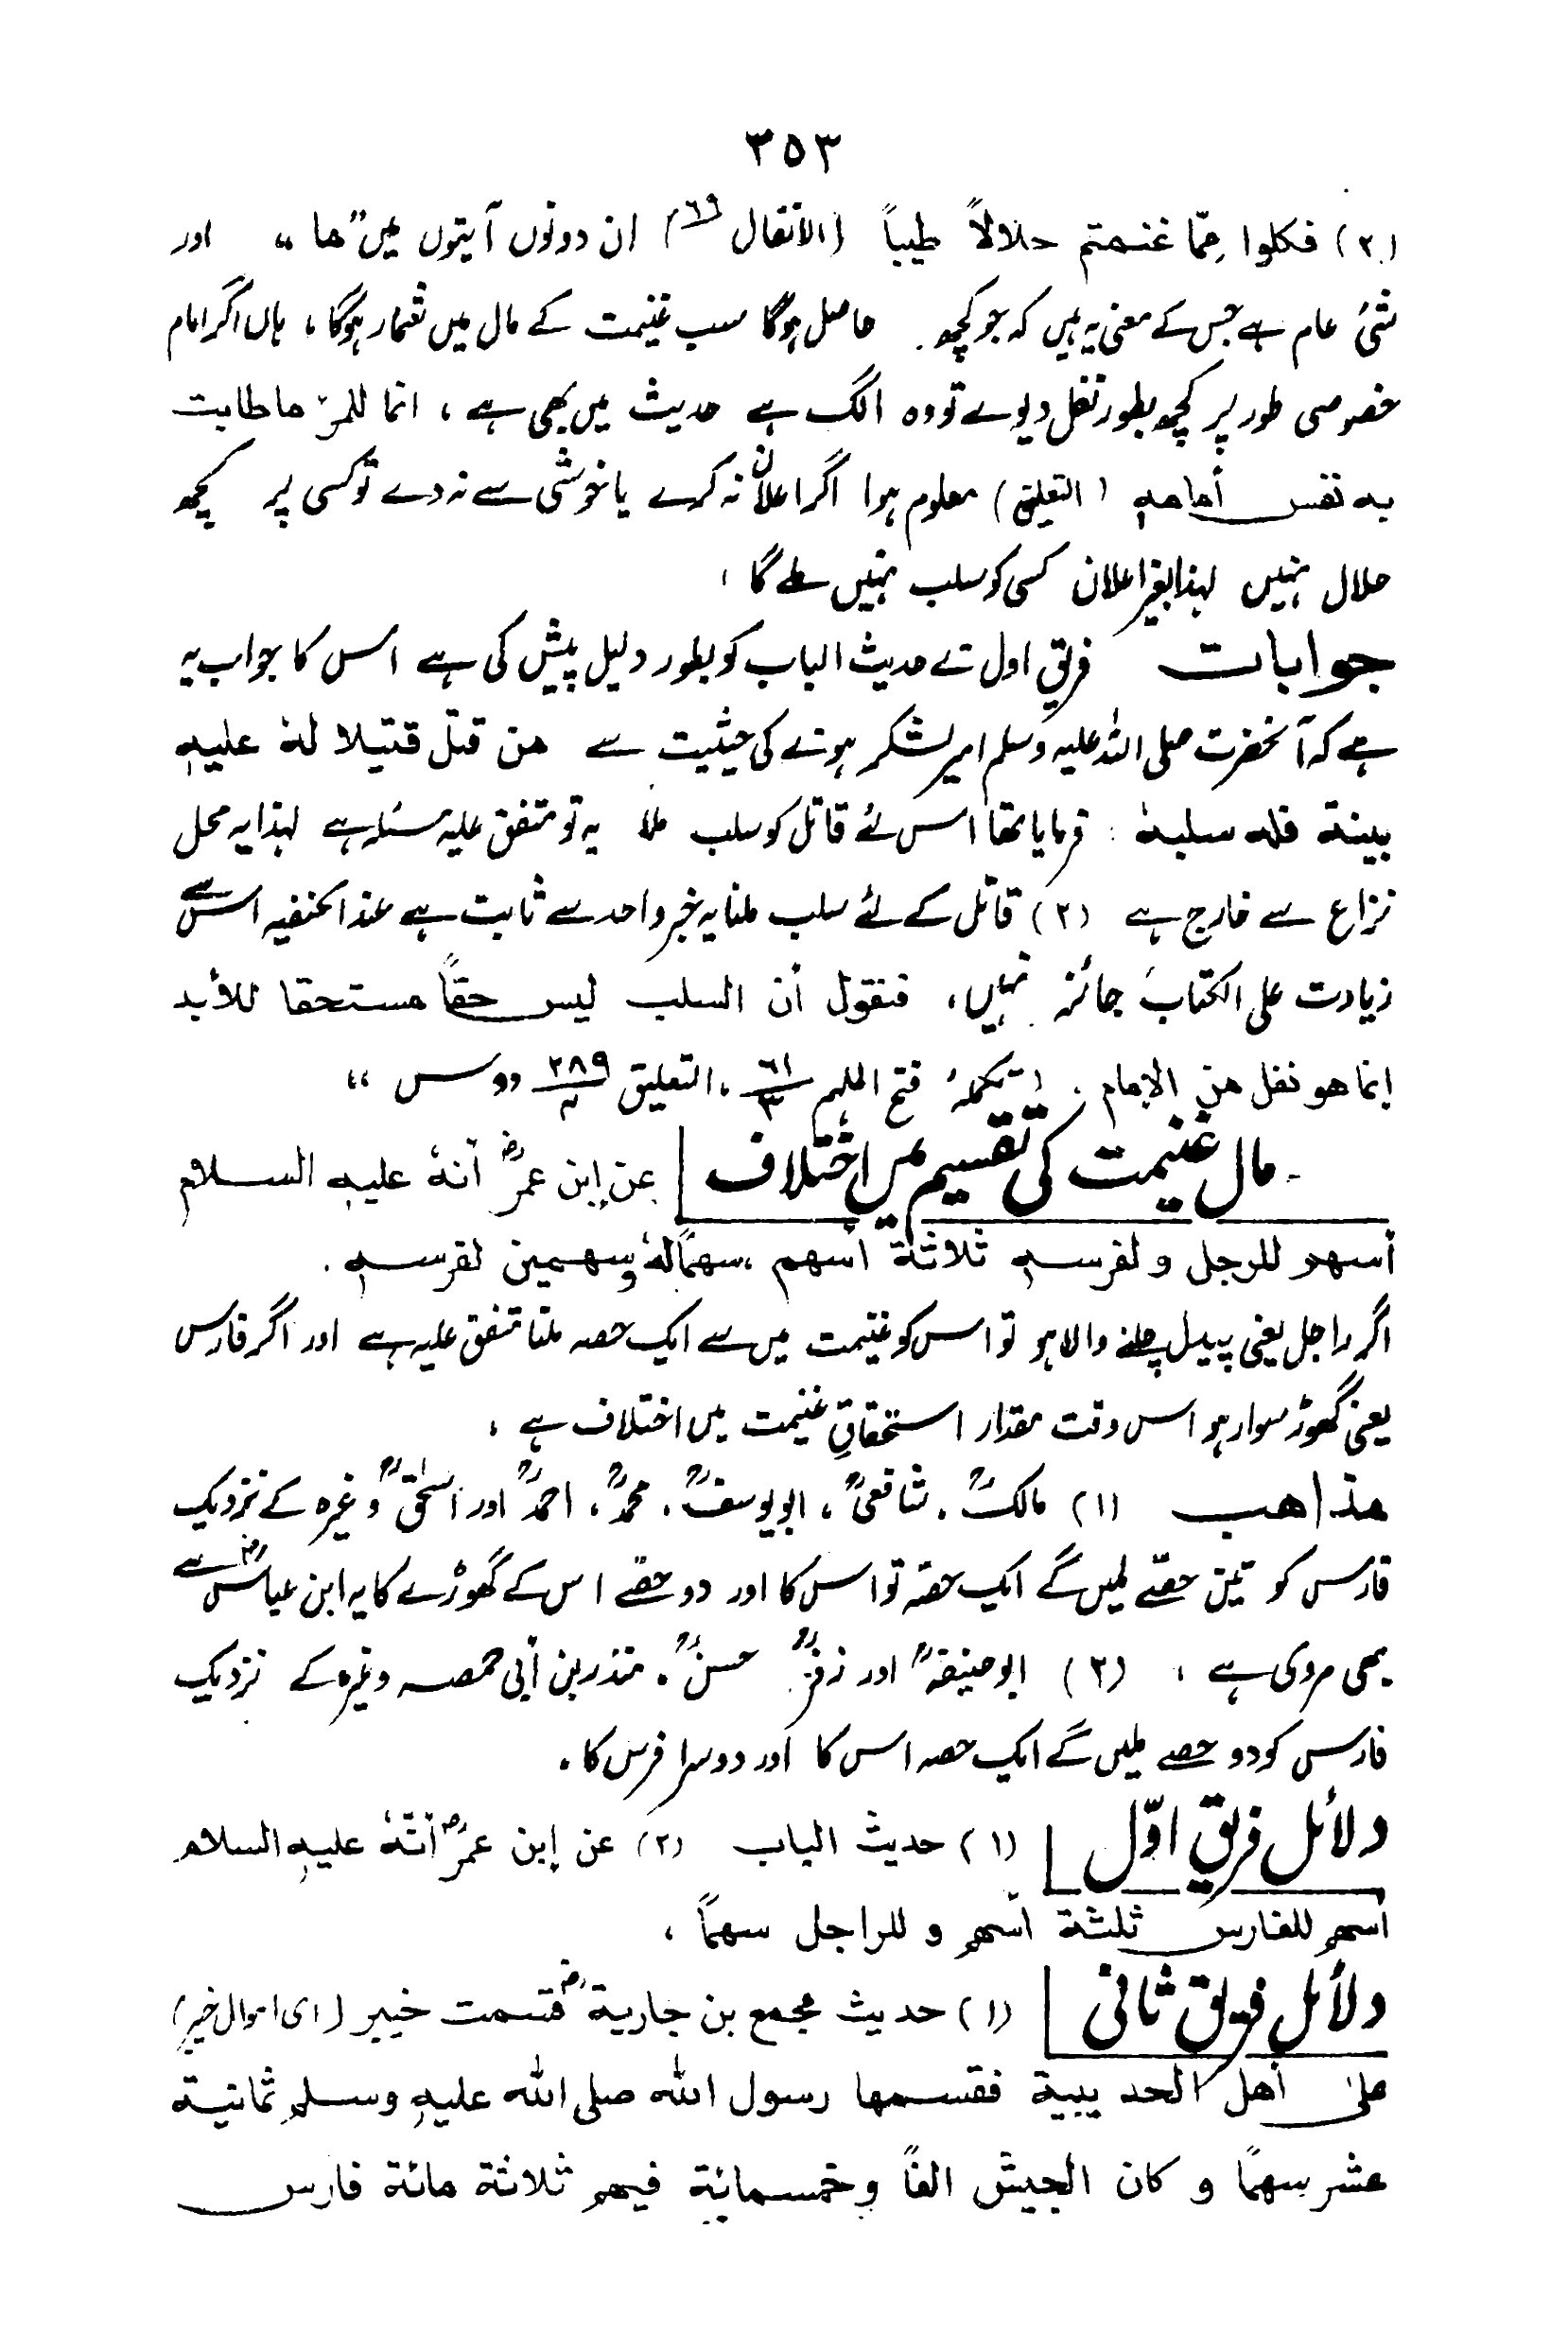 ۳۵۳
(۲) فکلوا مِمّا غنمتم حلالاً طیباً (الانفال ٦٩) ان دونوں آیتوں میں "ما" اور
شئ عام ہے جس کے معنی یہ ہیں کہ جو کچھ حاصل ہوگا سب غنیمت کے مال میں شمار ہوگا، ہاں اگر امام
خصوصی طور پر کچھ بطور نفل دیوے تو وہ الگ ہے حدیث میں بھی ہے، انما للمرء ماطابت
بہ نفس أمامہٖ (التعلیق) معلوم ہوا اگر اعلان نہ کرے یا خوشی سے نہ دے تو کسی پر کچھ
حلال نہیں لہذا بغیر اعلان کسی کو سلب نہیں ملے گا،
جوابات فریق اول نے حدیث الباب کو بطور دلیل پیش کی ہے اس کا جواب یہ
ہے کہ آنحضرت صلی اللہ علیہ وسلم امیر لشکر ہونے کی حیثیت سے من قتل قتیلا لہٗ علیہٖ
بینة فلہ سلبہٗ فرمایا تھا اس لئے قاتل کو سلب ملا یہ تو متفق علیہ مسئلہ ہے لہذا یہ محل
نزاع سے خارج ہے (۲) قاتل کے لئے سلب ملنا یہ خبر واحد سے ثابت ہے عند الحنفیہ اس سے
زیادت علی الکتاب جائز نہیں، فنقول أن السلب لیس حقاً مستحقا للأبد
إنما هو نفل من الإمام، (تکملۂ فتح الملہم ٦١/٣، التعلیق ٢٨٩/٤ دوس"
مال غنیمت کی تقسیم میں اختلاف عن إبن عمرؓ أنہٗ علیہ السلام
أسهم للرجل ولفرسہٖ ثلاثة أسهم، سهمًا لہٗ وسهمین لفرسہٖ.
اگر راجل یعنی پیدل چلنے والا ہو تو اس کو غنیمت میں سے ایک حصہ ملنا متفق علیہ ہے اور اگر فارس
یعنی گھوڑ سوار ہو اس وقت مقدار استحقاقِ غنیمت میں اختلاف ہے،
مذاھب (۱) مالکؒ، شافعیؒ، ابو یوسفؒ، محمدؒ، احمدؒ اور اسحٰقؒ وغیرہ کے نزدیک
فارس کو تین حصّے ملیں گے ایک حصّہ تو اس کا اور دو حصّے اس کے گھوڑے کا یہ ابن عباسؓ سے
بھی مروی ہے، (۲) ابو حنیفہؒ اور زفرؒ حسنؒ، منذر بن أبی حمصہ وغیرہ کے نزدیک
فارس کو دو حصے ملیں گے ایک حصہ اس کا اور دوسرا فرس کا۔
دلائل فریق اوّل (۱) حدیث الباب (۲) عن إبن عمرؓ أنّہٗ علیہ السلام
أسهم للفارس ثلثة أسهم و للراجل سهمًا،
دلائل فریق ثانی (۱) حدیث مجمع بن جاریةؓ قسمت خیبر (ای اموال خیبر)
علیٰ أهل الحدیبیة فقسمها رسول الله صلی الله علیہٖ وسلم ثمانیة
عشر سهمًا و کان الجیش الفًا وخمسمائة فیهم ثلاثة مائة فارس